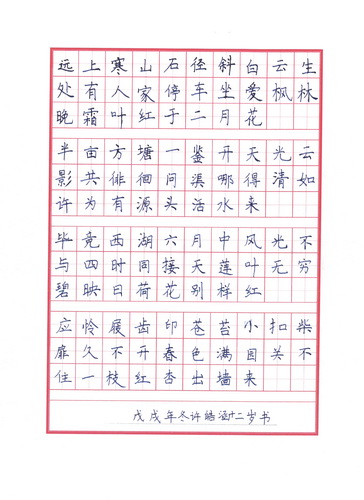 远上寒山石径斜白云生
处有人家停车坐爱枫林
晚霜叶红于二月花
半亩方塘一鉴开天光云
影共徘徊问渠哪得清如
许为有源头活水来
毕竟西湖六月中风光不
与四时同接天莲叶无穷
碧映日荷花别样红
应怜屐齿印苍苔小扣柴
扉久不开春色满园关不
住一枝红杏出墙来
戊戌年冬许皓涵十二岁书